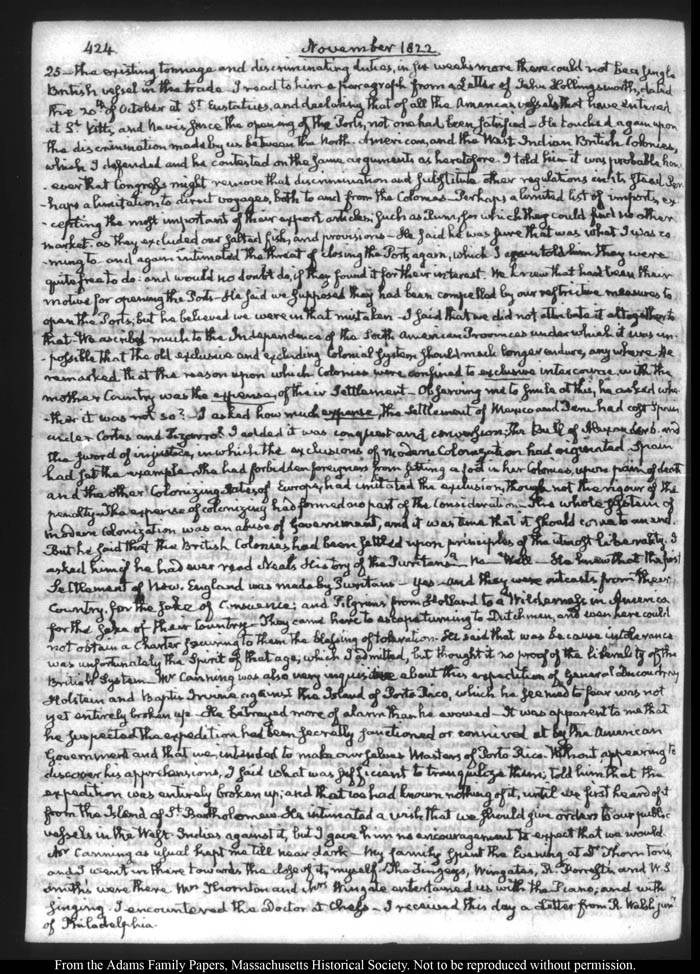 424. November 1822
25— the existing tonnage and discriminating duties, in six weeks more there could not be a single
British vessel in the trade. I read to him a paragraph from a Letter of John Hollingsworth, dated
the 20th of October at St Eustatius, and declaring that of all the American vessels that have entered
at St Kitts, and Nevis since the opening of the Ports, not one had been fatisfied— He touched again upon
the discrimination made by us between the North-American, and the West Indian British Colonies,
which I defended and he contested on the same arguments as heretofore. I told him it was probable how-
-ever that Congress might remove that discrimination and substitute other regulations in its stead. Per-
-haps a limitation to direct voyages, both to and from the Colonies— Perhaps a limited list of imports, ex-
-cepting the most important of their export articles; such as Rum, for which they could find no other
market. as they excluded our salted fish, and provisions— He said he was sure that was what I was co
-ming to— and again intimated the threat of closing the Ports again, which I again told him they were
quite free to do: and would no doubt do, if they found it for their interest. We knew that had been their
motive for opening the Ports— He said we supposed they had been compelled by our restrictive measures to
open the Ports; but he believed we were in that mistaken— I said that we did not attribute it altogether to
that. We ascribed much to the Independence of the South American Provinces under which it was im-
-possible that the old exclusive and excluding Colonial System should much longer endure, any where. He
remarked that the reason upon which Colonies were confined to exclusive intercourse with the
mother Country was the expense of their Settlement— Observing me to smile at this, he asked whe-
-ther it was not so?— I asked how much expense the settlement of Mexico and Peru had cost Spain
under Cortes and Pizarro? I added it was conquest and conversion: the Bull of Alexander 6. and
the sword of injustice, in which the exclusions of modern Colonization had originated. Spain
had set the example. She had forbidden foreigners from setting a foot in her Colonies, upon pain of death
and the other Colonizing States of Europe, had imitated the exclusion, though not the rigour of the
penalty. The expense of colonizing had formed no part of the consideration— The whole system of
modern Colonization was an abuse of Government, and it was time that it should come to an end.
But he said that the British Colonies had been settled upon principles of the utmost liberality. I
asked him if he had ever read Neal's History of the Puritans? No— Well— He knew that the first
Settlement of New England was made by Puritans— Yes— and they were outcasts from their
Country, for the sake of Conscience; and Pilgrims from Holland to a Wilderness in America
for the sake of their Country— They came here to escape turning to Dutchmen, and even here could
not obtain a Charter securing to them the blessing of toleration. He said that was because intolerance
was unfortunately the Spirit of that age, which I admitted, but thought it no proof of the liberality of the
British System— Mr Canning was also very inquisitive about this expedition of General Ducoudray
Holstein and Baptis Irvine against the Island of Porto Rico, which he seemed to fear was not
yet entirely broken up— He betrayed more of alarm than he avowed— It was apparent to me that
he suspected the expedition had been secretly sanctioned or connived at by the American
Government and that we intended to make ourselves Masters of Porto Rico. Without appearing to
discover his apprehensions, I said what was sufficient to tranquilize them; told him that the
expedition was entirely broken up; and that we had known nothing of it, until we first heard of it
from the Island of St Bartholomew. He intimated a wish that we should give orders to our public
vessels in the West-Indies against it, but I gave him no encouragement to expect that we would.
Mr Canning as usual kept me till near dark— My family spent the Evening at Dr Thornton's
and I went in there towards the close of it, myself. The Tingeys, Wingates, R. Forrests, and W. S.
Smiths were there. Mrs Thornton and Mrs Wingate entertained us with the Piano; and with
singing. I encountered the Doctor at Chess— I received this day a Letter from R. Walsh junr
of Philadelphia.
From the Adams Family Papers, Massachusetts Historical Society. Not to be reproduced without permission.